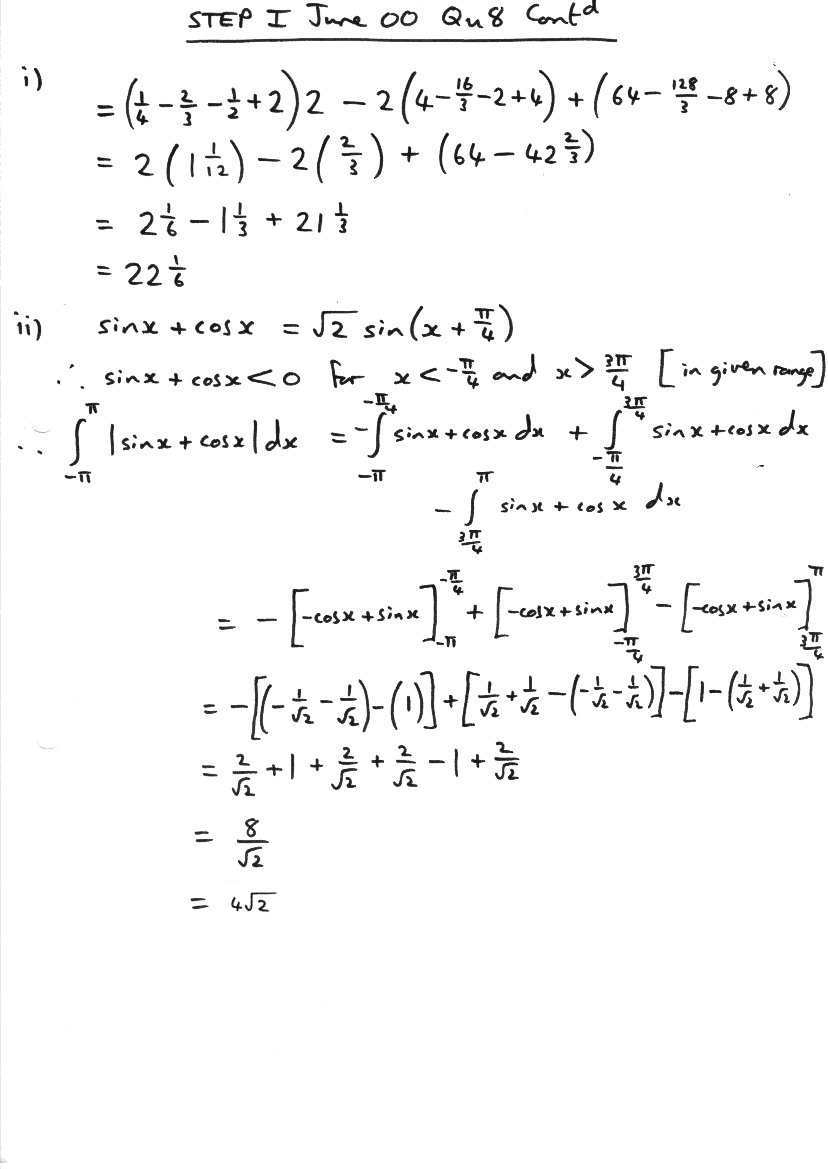 STEP I June 00 Qu 8 Contd
i)
= (1/4 - 2/3 - 1/2 + 2)2 - 2(4 - 16/3 - 2 + 4) + (64 - 128/3 - 8 + 8)
= 2(1 1/12) - 2(2/3) + (64 - 42 2/3)
= 2 1/6 - 1 1/3 + 21 1/3
= 22 1/6
ii) sinx + cosx = √2 sin(x + π/4)
∴ sinx + cosx < 0 for x < -π/4 and x > 3π/4 [in given range]
∴ ∫_{-π}^{π} |sinx + cosx| dx = -∫_{-π}^{-π/4} sinx + cosx dx + ∫_{-π/4}^{3π/4} sinx + cosx dx
- ∫_{3π/4}^{π} sinx + cosx dx
= -[-cosx + sinx]_{-π}^{-π/4} + [-cosx + sinx]_{-π/4}^{3π/4} - [-cosx + sinx]_{3π/4}^{π}
= -[(-1/√2 - 1/√2) - (1)] + [1/√2 + 1/√2 - (-1/√2 - 1/√2)] - [1 - (1/√2 + 1/√2)]
= 2/√2 + 1 + 2/√2 + 2/√2 - 1 + 2/√2
= 8/√2
= 4√2